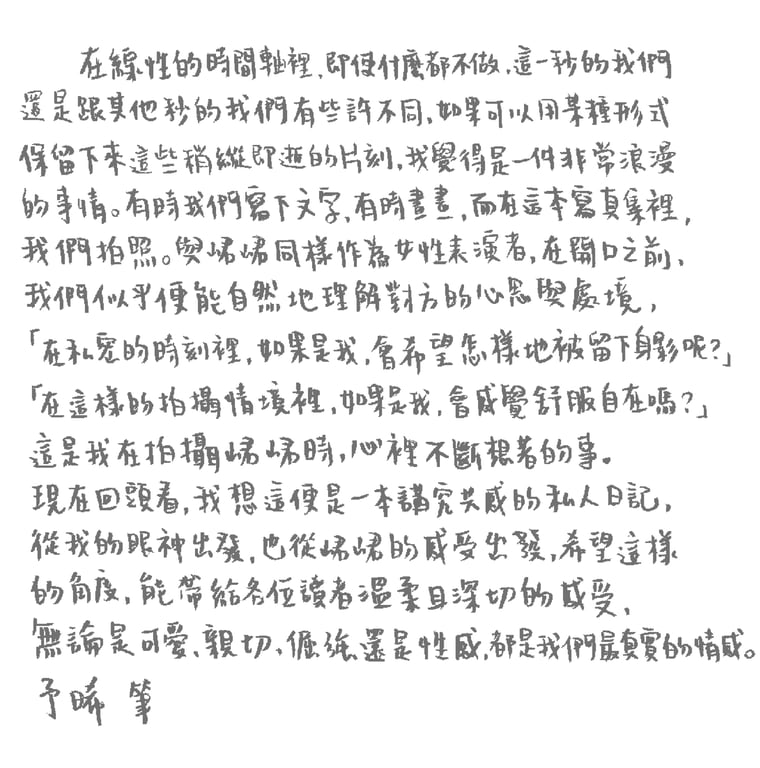 在線性的時間軸裡，即使什麼都不做，這一秒的我們
還是跟其他秒的我們有些許不同，如果可以用某種形式
保留下來這些稍縱即逝的片刻，我覺得是一件非常浪漫
的事情。有時我們寫下文字，有時畫畫，而在這本寫真集裡，
我們拍照。與峮峮同樣作為女性表演者，在開口之前，
我們似乎便能自然地理解對方的心思與處境，
「在私密的時刻裡，如果是我，會希望怎樣地被留下身影呢？」
「在這樣的拍攝情境裡，如果是我，會感覺舒服自在嗎？」
這是我在拍攝峮峮時，心裡不斷想著的事。
現在回頭看，我想這便是一本講究共感的私人日記，
從我的眼神出發，也從峮峮的感受出發，希望這樣
的角度，能帶給各位讀者溫柔且深切的感受，
無論是可愛、親切、倔強還是性感，都是我們最真實的情感。
予晞 筆